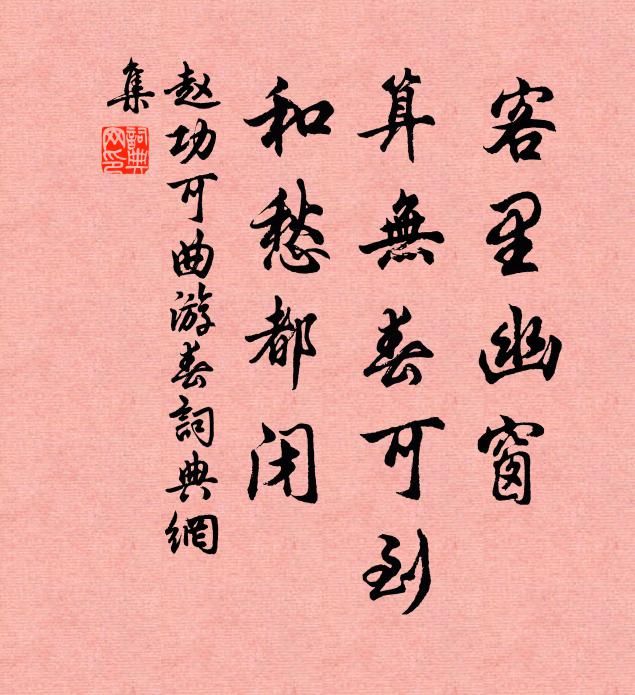 客里幽窗
算無春可到
和愁都闭
赵功可曲游春詞典網
集
詞典
网印